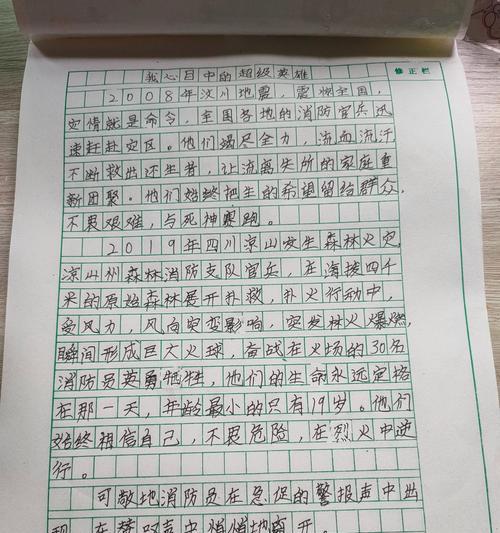 我心目中的超级英雄
修正栏
2008年汶川地震，震惊全国，
灾情就是命令，全国各地的消防官兵迅
速赶赴灾区。他们竭尽全力，流血流汗
不断救出还生者，让流离失所的家庭重
新团聚。他们始终把生的希望留给群众，
不畏艰难，与死神赛跑。
2019年四川凉山发生森林火灾，
凉山州森林消防支队官兵，在海拔四千
米的原始森林展开扑救，扑火行动中，
受风力，风向突变影响，突发林火爆燃，
瞬间形成巨大火球，奋战在火场的30名
消防员英勇牺牲，他们的生命永远定格
在那一天，年龄最小的只有19岁。他们
始终相信自己，不畏危险，在烈火中逆
行。
可敬地消防员在急促的警报声中出
现，在赞叹声中悄悄地离开。